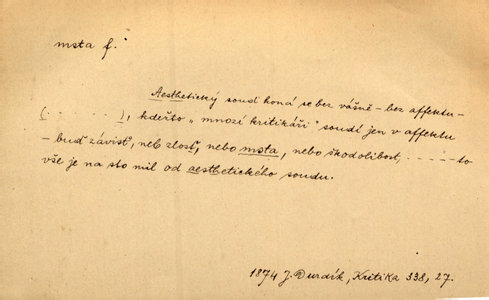 msta f.
Aesthetický soud koná se bez vášně - bez affektu -
(. . . . . .), kdežto „mnozí kritikáři" soudí jen v affektu
- buď závist, neb zlost, nebo msta, nebo škodolibost, . . . . - to
vše je na sto mil od aesthetického soudu.
1874 J. Durdík, Kritika 338, 27.